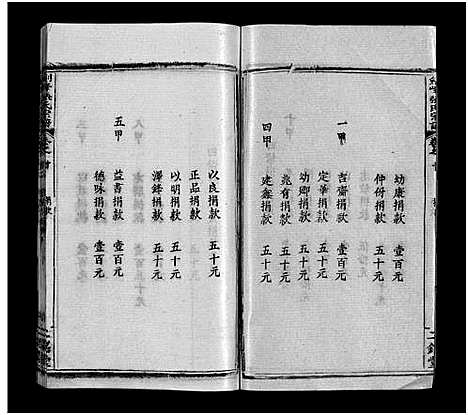 幼康捐款 壹百元
仲份捐款 五十元
一甲
吉齋捐款 壹百元
定華捐款 五十元
幼卿捐款 五十元
兆有捐款 五十元
四甲
建鑫捐款 五十元
以良捐款 五十元
正品捐款
以明捐款 五十元
澤鋒捐款 五十元
五甲
益書捐款 壹百元
德咏捐款 壹百元